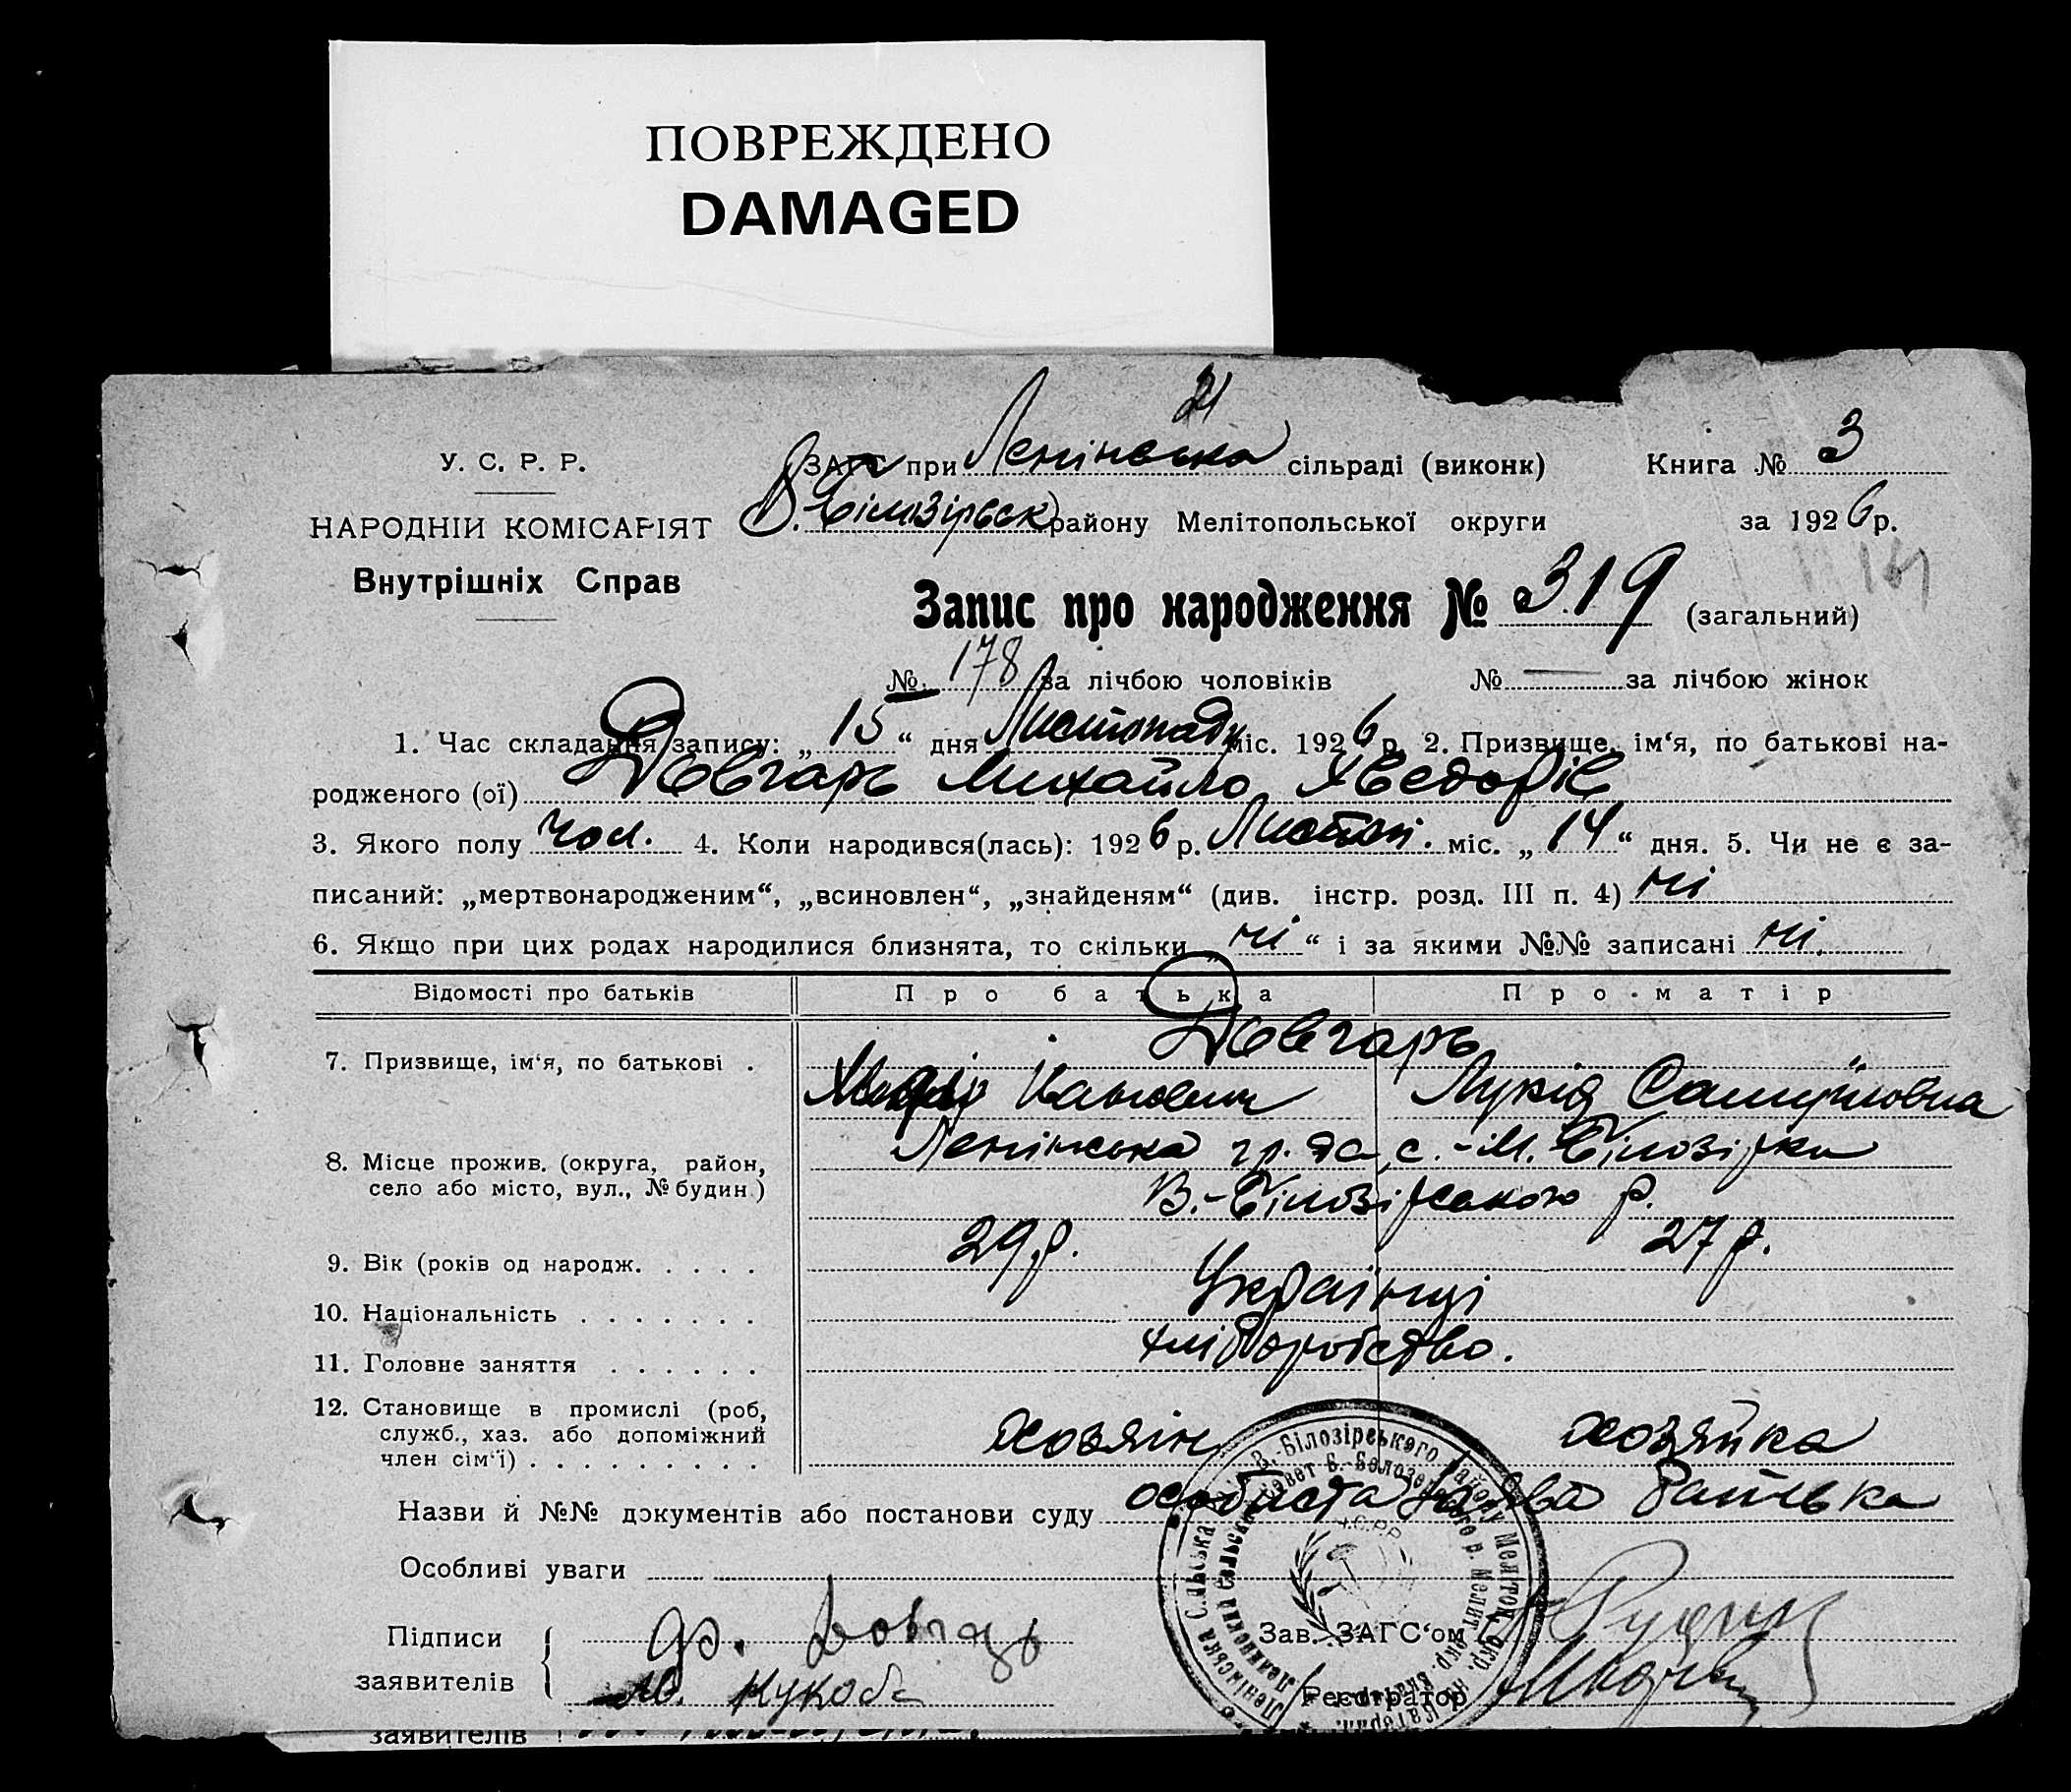 ПОВРЕЖДЕНО
DAMAGED
21
У. С. Р. Р.
ЗАГС при Ленінська сільраді (виконк) Книга № 3
НАРОДНІЙ КОМІСАРІЯТ В.-Білозірськ району Мелітопольської округи за 1926 р.
Внутрішніх Справ
Запис про народження № 319 (загальний)
№ 178 за лічбою чоловіків № — за лічбою жінок
1. Час складання запису: „ 15 “ дня Листопаду міс. 1926 р. 2. Призвище, ім‘я, по батькові на-
родженого (ої) Довгарь Михайло Хведорів
3. Якого полу чол. 4. Коли народився(лась): 1926 р. Листоп. міс. „ 14 “ дня. 5. Чи не є за-
писаний: „мертвонародженим“, „всиновлен“, „знайденям“ (див. інстр. розд. III п. 4) ні
6. Якщо при цих родах народилися близнята, то скільки „ ні “ і за якими №№ записані ні.
Відомості про батьків Про батька Про матір
Довгарь
7. Призвище, ім‘я, по батькові . Хведір Іванович Лукія Самуйловна
8. Місце прожив. (округа, район, Ленінська гр. та, с.-М. Білозірки
село або місто, вул., № будин.) В.-Білозірського р.
9. Вік (років од народж. . . . . 29 р. 27 р.
10. Національність . . . . . . . Українці
11. Головне заняття . . . . . . хліборобство.
12. Становище в промислі (роб,
служб., хаз. або допоміжний хозяїн хозяйка
член сім‘ї) . . . . . . . . .
Назви й №№ документів або постанови суду особиста заява батька
Особливі уваги
Підписи
заявителів
Довгарь
Кукоба
Зав. ЗАГС‘ом
Реєстратор
Ленінська Сільська Рада В.-Білозірського району Мелітоп. окр.
заявителів